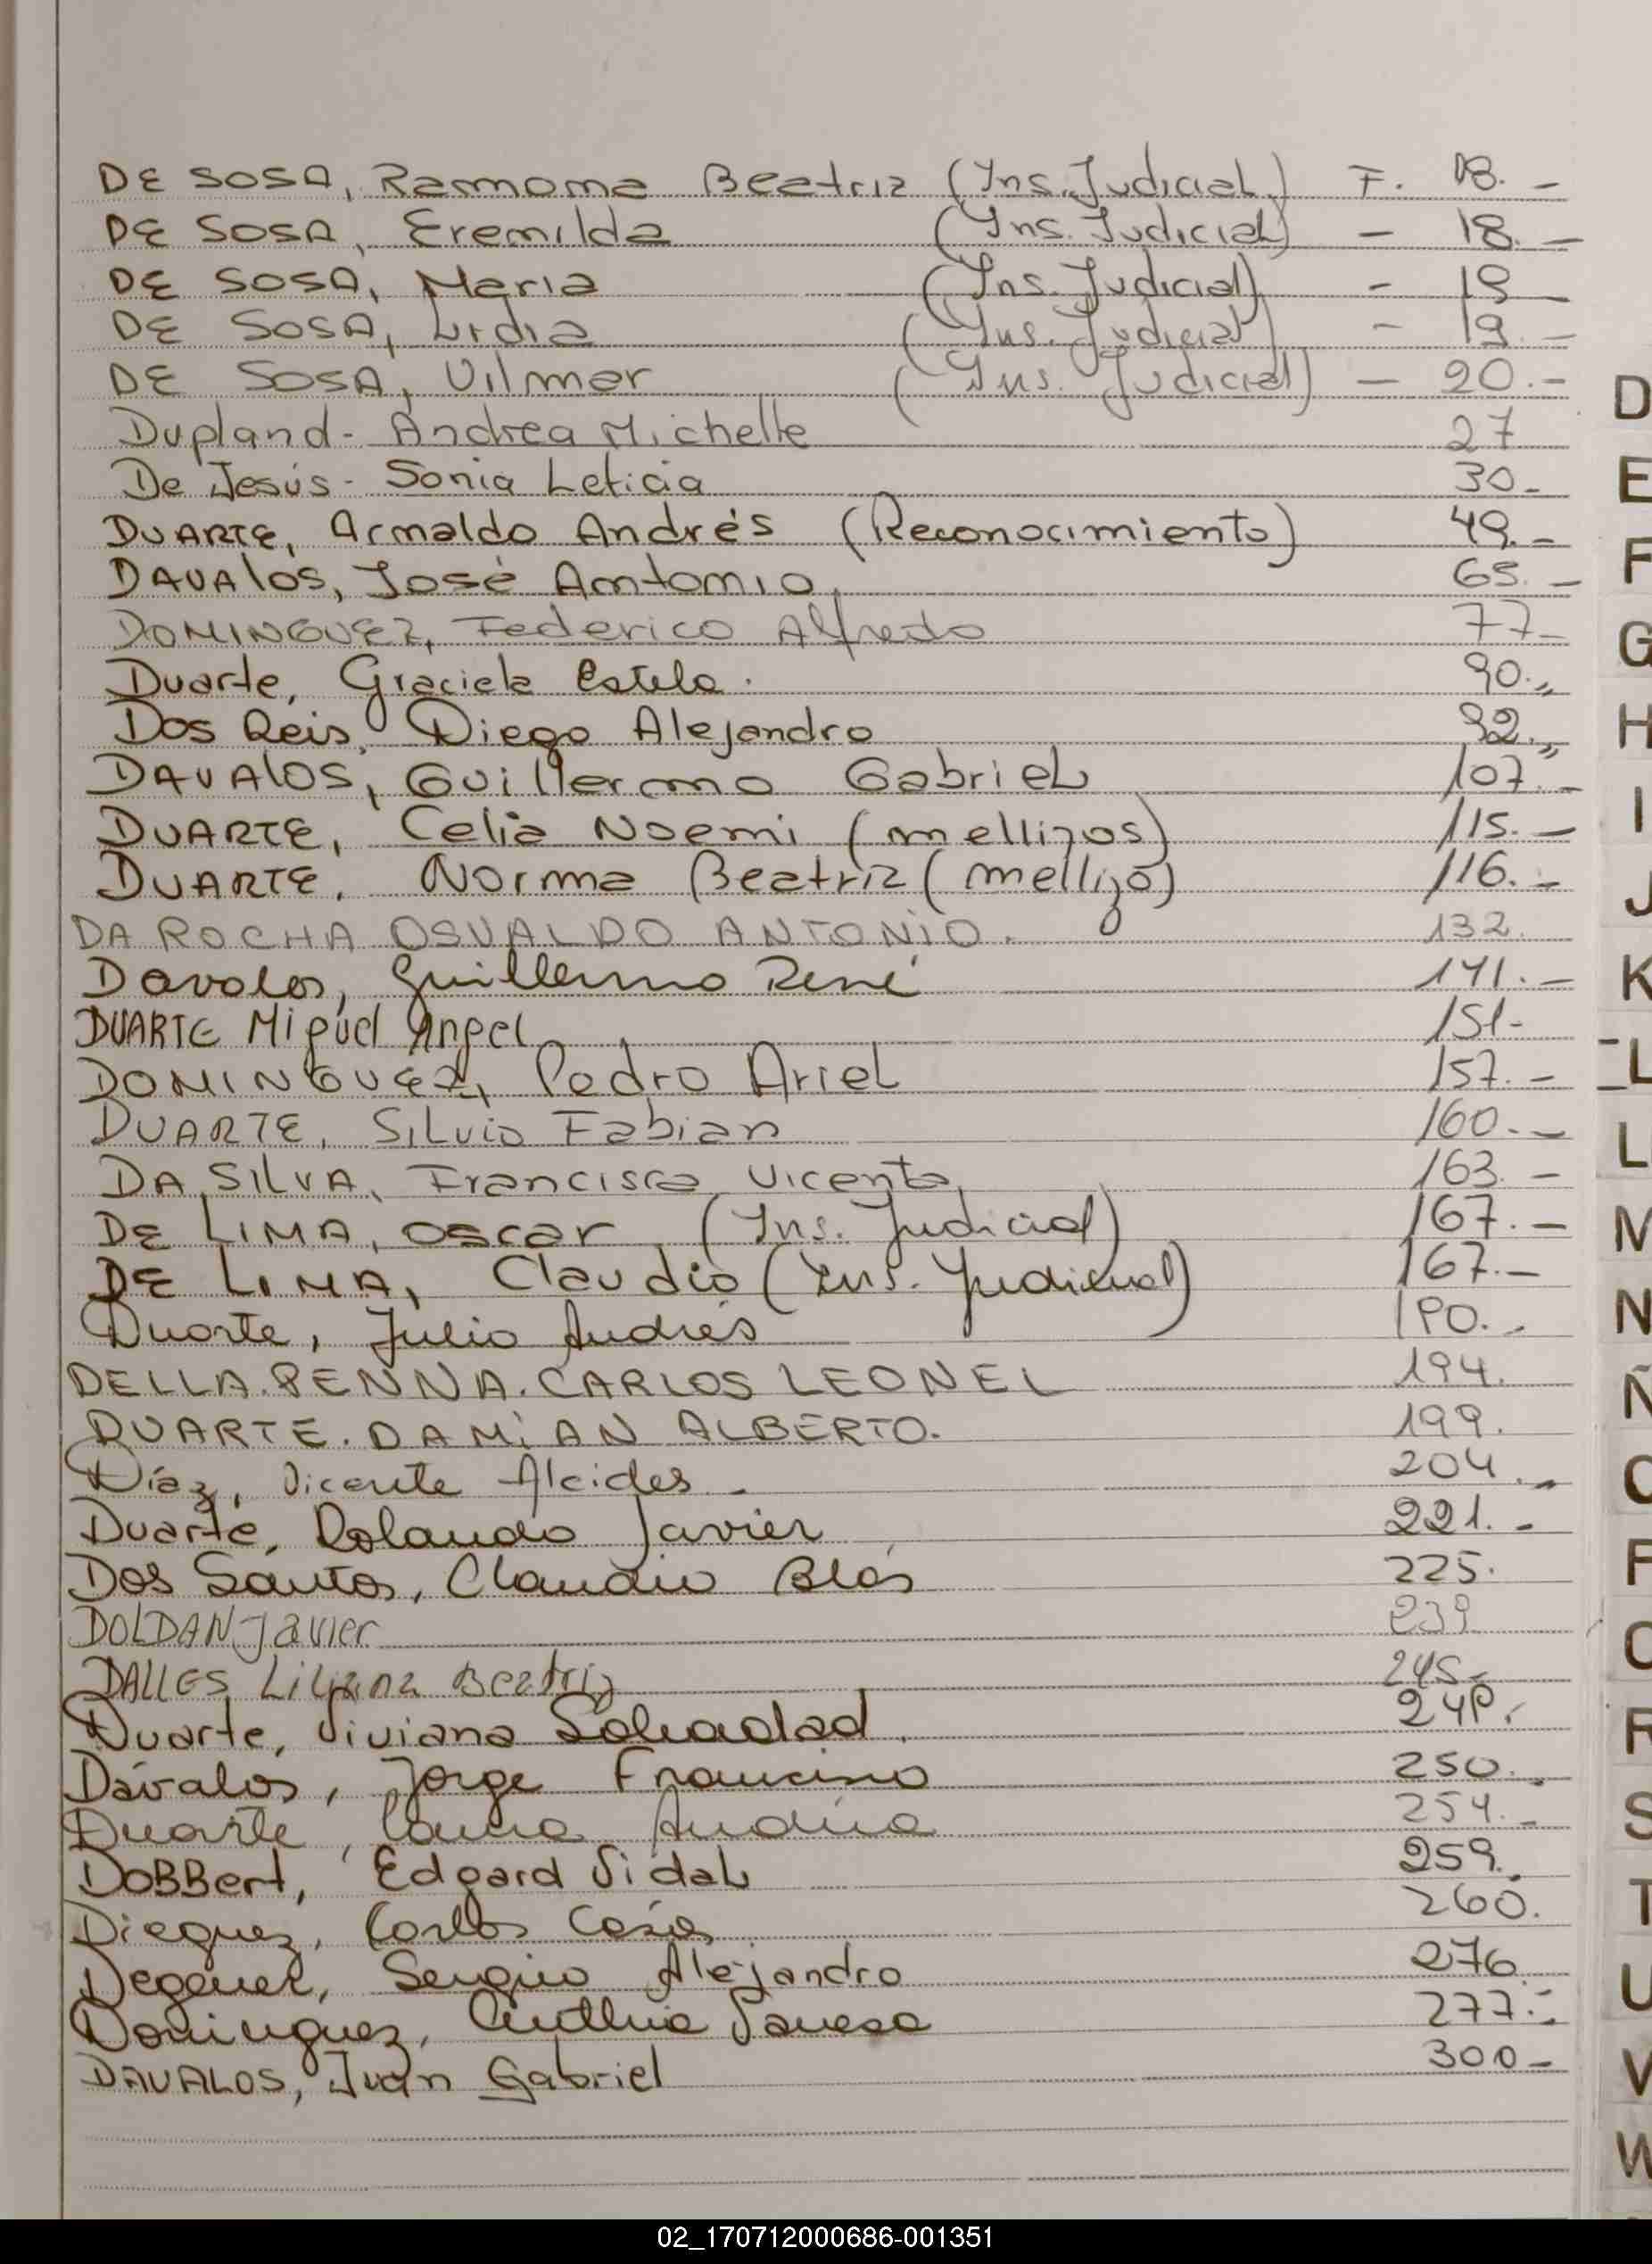 DE SOSA, Ramona Beatriz (Ins. Judicial) F. 18.-
DE SOSA, Eremilda (Ins. Judicial) - 18.-
DE SOSA, Maria (Ins. Judicial) - 19
DE SOSA, Lidia (Ins. Judicial) - 19.-
DE SOSA, Vilmar (Ins. Judicial) - 20.-
Dupland- Andrea Michelle 27
De Jesús- Sonia Leticia 30-
DUARTE, Arnaldo Andrés (Reconocimiento) 49.-
DAVAlos, José Antonio, 65.-
DOMINGUEZ, Federico Alfredo 77-
Duarte, Graciela Estela. 90.,,
Dos Reis, Diego Alejandro 92.,,
DAVAlOS, Guillermo Gabriel 107.-
DUARTE, Celia Noemi (mellizos) 115.-
DUARTE, Norma Beatriz (mellizo) 116.-
DA ROCHA OSVALDO ANTONIO. 132.
Davalos, Guillermo René 141.-
DUARTE Miguel Angel 151-
DOMINGUEZ, Pedro Ariel 157.-
DUARTE, Silvio Fabian 160.-
DA SILVA, Francisco Vicente 163.-
DE LIMA, Oscar (Ins. Judicial) 167.-
DE LIMA, Claudio (Ins. Judicial) 167.-
Duarte, Julio Andrés 180.-
DELLA.PENNA.CARLOS LEONEL 194.
DUARTE.DAMIAN ALBERTO. 199.
Díaz, Vicente Alcides. 204.-
Duarte, Rolando Javier 221.-
Dos Santos, Claudio Blás 225.
DOLDAN, Javier 239
DALLES, Liliana Beatriz 245-
Duarte, Viviana Soledad. 248.
Dávalos, Jorge Francisco 250.
Duarte, Andrea 254.-
DoBBert, Edgard Vidal 259.
Dieguez, Carlos 260.
Degener, Sergio Alejandro 276
Dominguez, Cinthia Vanesa 277.-
DAVALOS, Juan Gabriel 300-
D
E
F
G
H
I
J
K
L
L
M
N
Ñ
O
P
Q
R
S
T
U
V
W
02_170712000686-001351